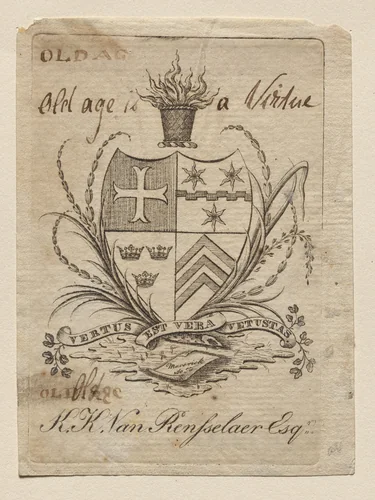 OLD AG
Old age is a Virtue
VERTUS EST VERA VETUSTAS
Maverick
K. K. Van Rensselaer Esqr.